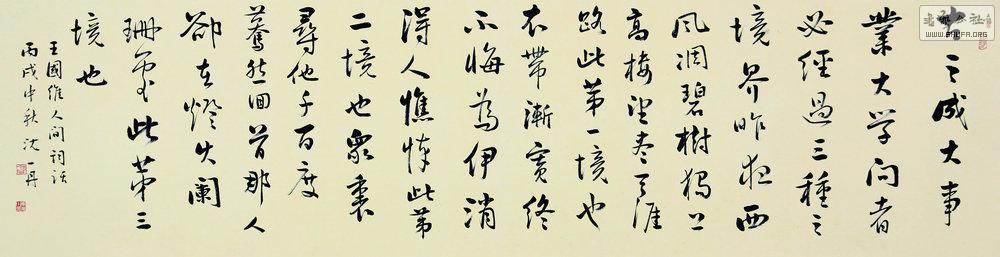 之成大事
業大学问者
必經過三種之
境界昨夜西
風凋碧樹獨上
高樓望盡天涯
路此第一境也
衣帶漸寬終
不悔為伊消
得人憔悴此第
二境也眾裏
尋他千百度
驀然回首那人
卻在燈火闌
珊處此第三
境也
王國維人间詞話
丙戌中秋沈一丹
WWW.SHUFA.ORG